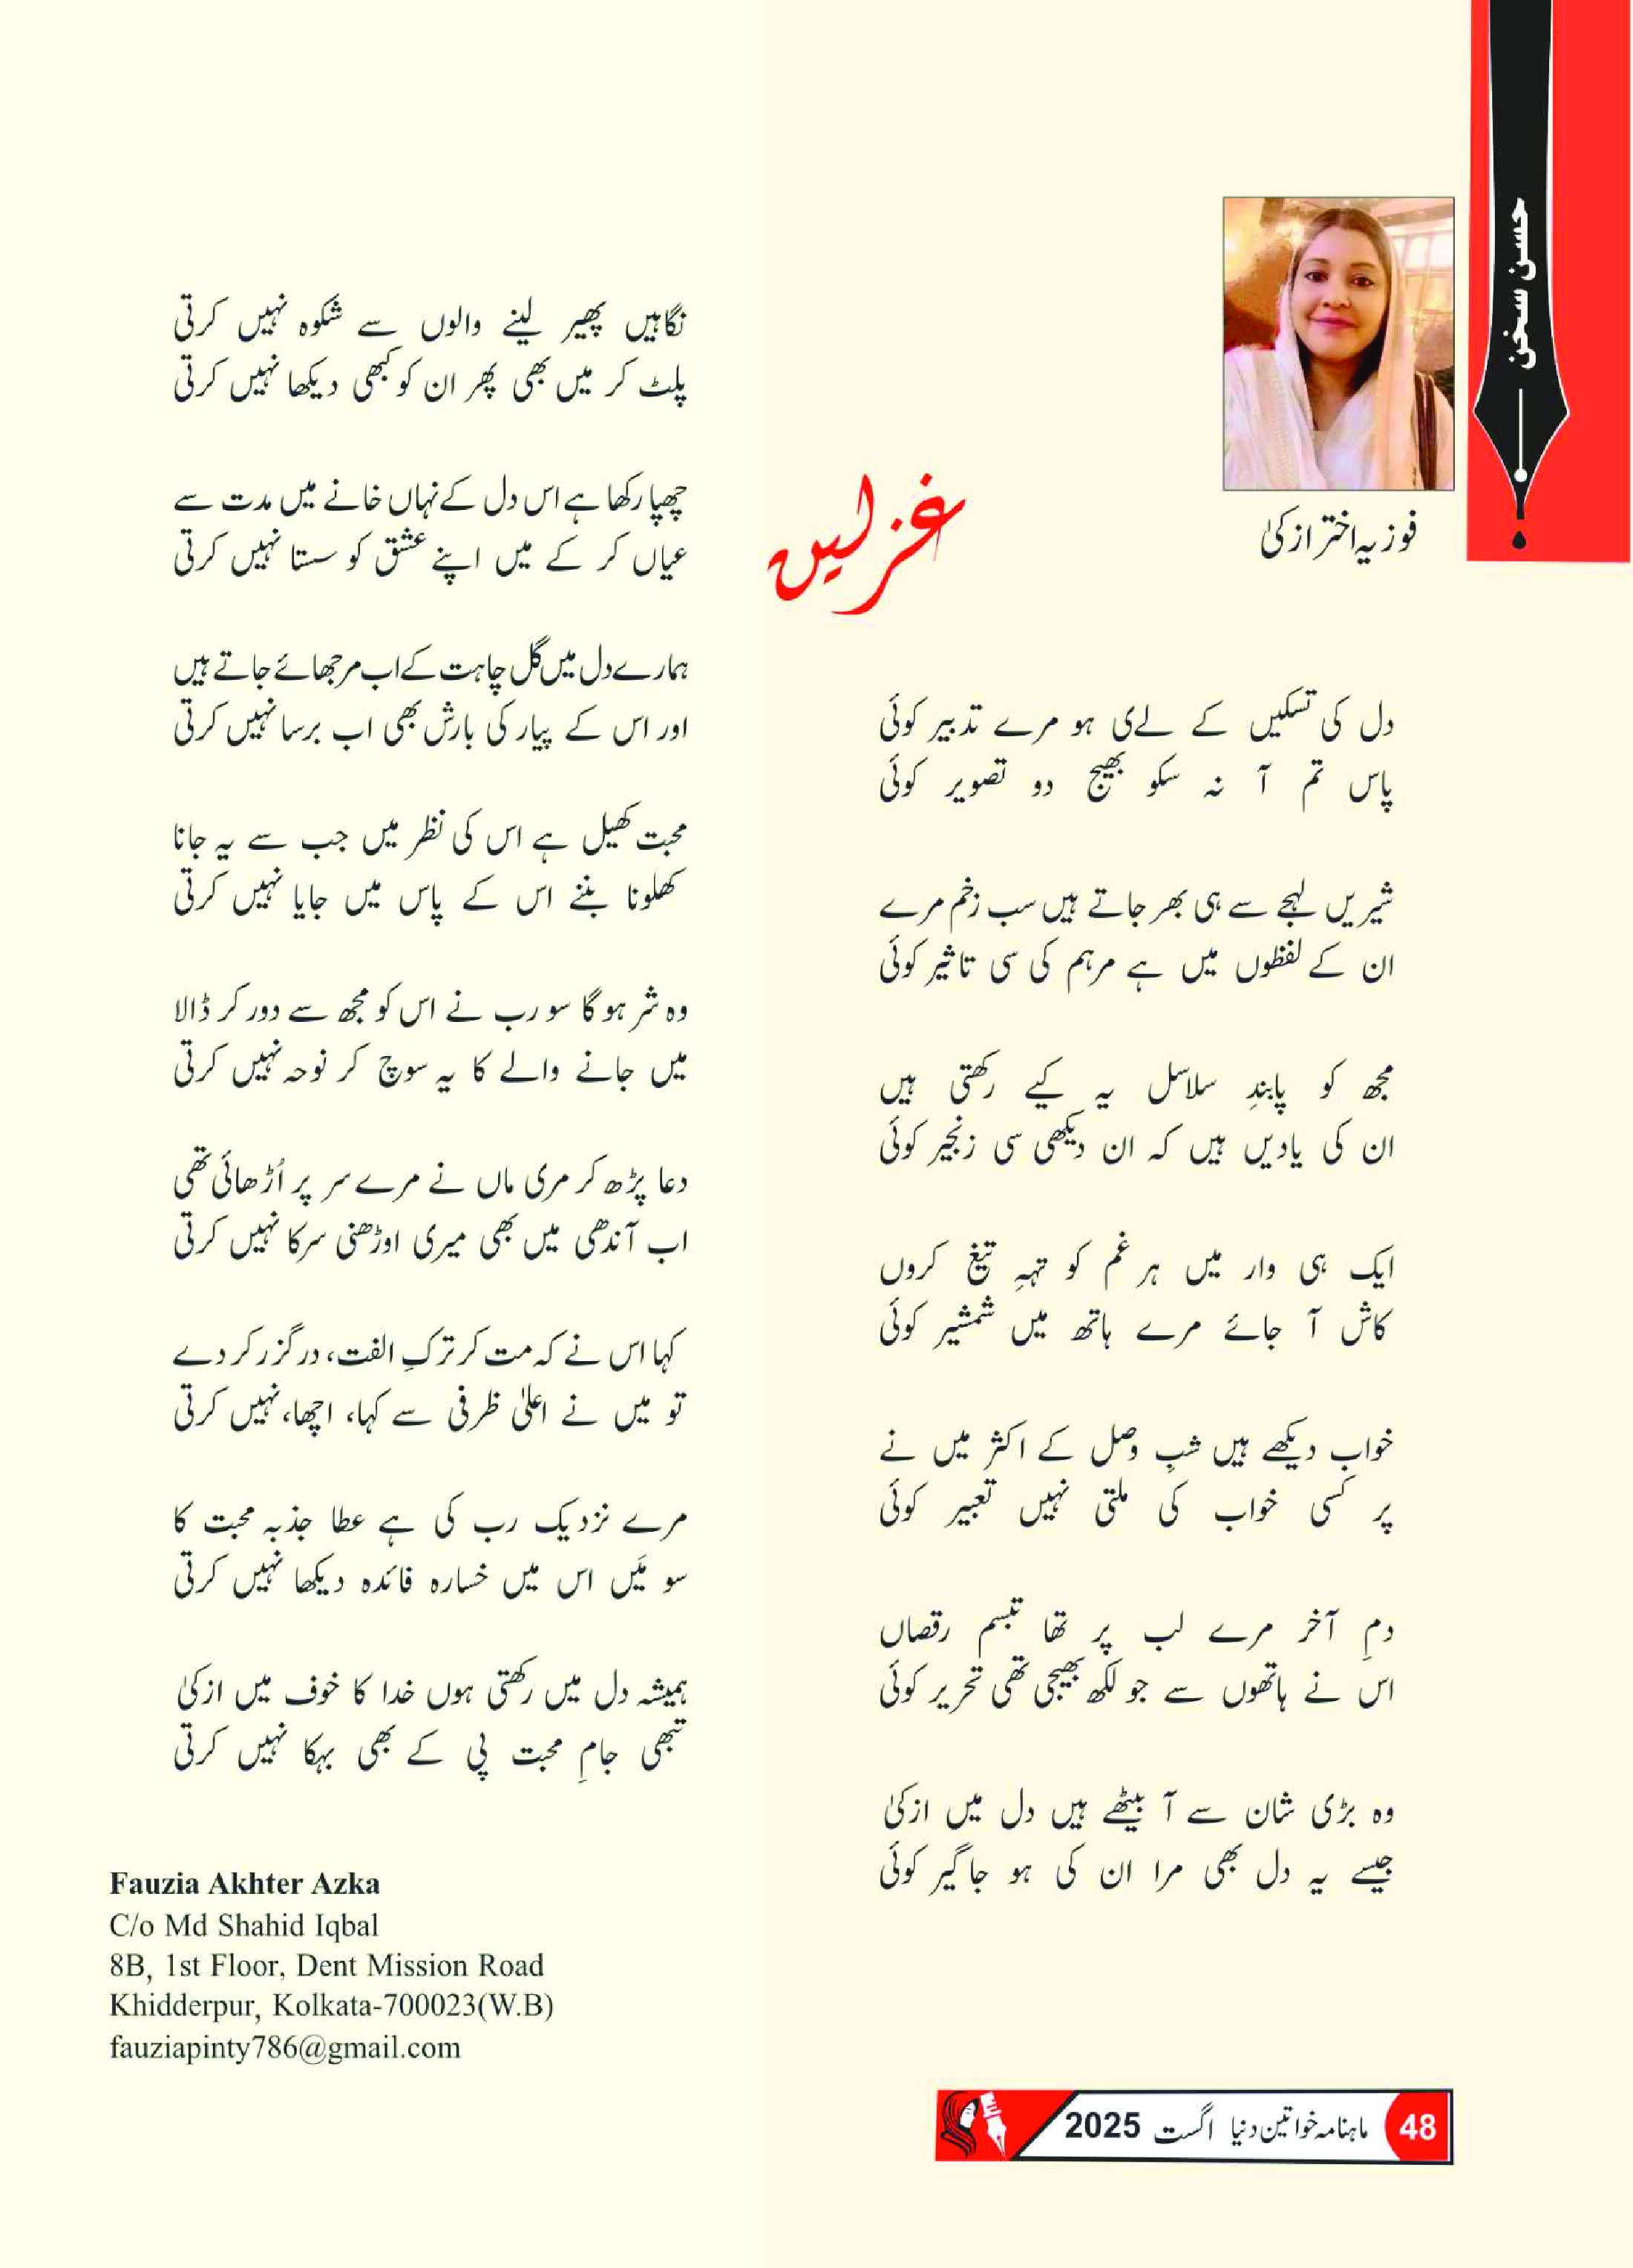 حسن سخن
فوزیہ اختر ازکیٰ
غزلیں
دل کی تسکیں کے لےی ہو مرے تدبیر کوئی
پاس تم آ نہ سکو بھیج دو تصویر کوئی
شیریں لہجے سے ہی بھر جاتے ہیں سب زخم مرے
ان کے لفظوں میں ہے مرہم کی سی تاثیر کوئی
مجھ کو پابندِ سلاسل یہ کیے رکھتی ہیں
ان کی یادیں ہیں کہ ان دیکھی سی زنجیر کوئی
ایک ہی وار میں ہر غم کو تہہِ تیغ کروں
کاش آ جائے مرے ہاتھ میں شمشیر کوئی
خواب دیکھے ہیں شبِ وصل کے اکثر میں نے
پر کسی خواب کی ملتی نہیں تعبیر کوئی
دمِ آخر مرے لب پر تھا تبسم رقصاں
اس نے ہاتھوں سے جو لکھ بھیجی تھی تحریر کوئی
وہ بڑی شان سے آ بیٹھے ہیں دل میں ازکیٰ
جیسے یہ دل بھی مرا ان کی ہو جاگیر کوئی
نگاہیں پھیر لینے والوں سے شکوہ نہیں کرتی
پلٹ کر میں بھی پھر ان کو کبھی دیکھا نہیں کرتی
چھپا رکھا ہے اس دل کے نہاں خانے میں مدت سے
عیاں کر کے میں اپنے عشق کو سستا نہیں کرتی
ہمارے دل میں گل چاہت کے اب مرجھائے جاتے ہیں
اور اس کے پیار کی بارش بھی اب برسا نہیں کرتی
محبت کھیل ہے اس کی نظر میں جب سے یہ جانا
کھلونا بننے اس کے پاس میں جایا نہیں کرتی
وہ شر ہو گا سو رب نے اس کو مجھ سے دور کر ڈالا
میں جانے والے کا یہ سوچ کر نوحہ نہیں کرتی
دعا پڑھ کر مری ماں نے مرے سر پر اُڑھائی تھی
اب آندھی میں بھی میری اوڑھنی سرکا نہیں کرتی
کہا اس نے کہ مت کر ترکِ الفت، درگزر کر دے
تو میں نے اعلیٰ ظرفی سے کہا، اچھا، نہیں کرتی
مرے نزدیک رب کی ہے عطا جذبہ محبت کا
سو مَیں اس میں خسارہ فائدہ دیکھا نہیں کرتی
ہمیشہ دل میں رکھتی ہوں خدا کا خوف میں ازکیٰ
تبھی جامِ محبت پی کے بھی بہکا نہیں کرتی
Fauzia Akhter Azka
C/o Md Shahid Iqbal
8B, 1st Floor, Dent Mission Road
Khidderpur, Kolkata-700023(W.B)
fauziapinty786@gmail.com
48 ماہنامہ خواتین دنیا اگست 2025